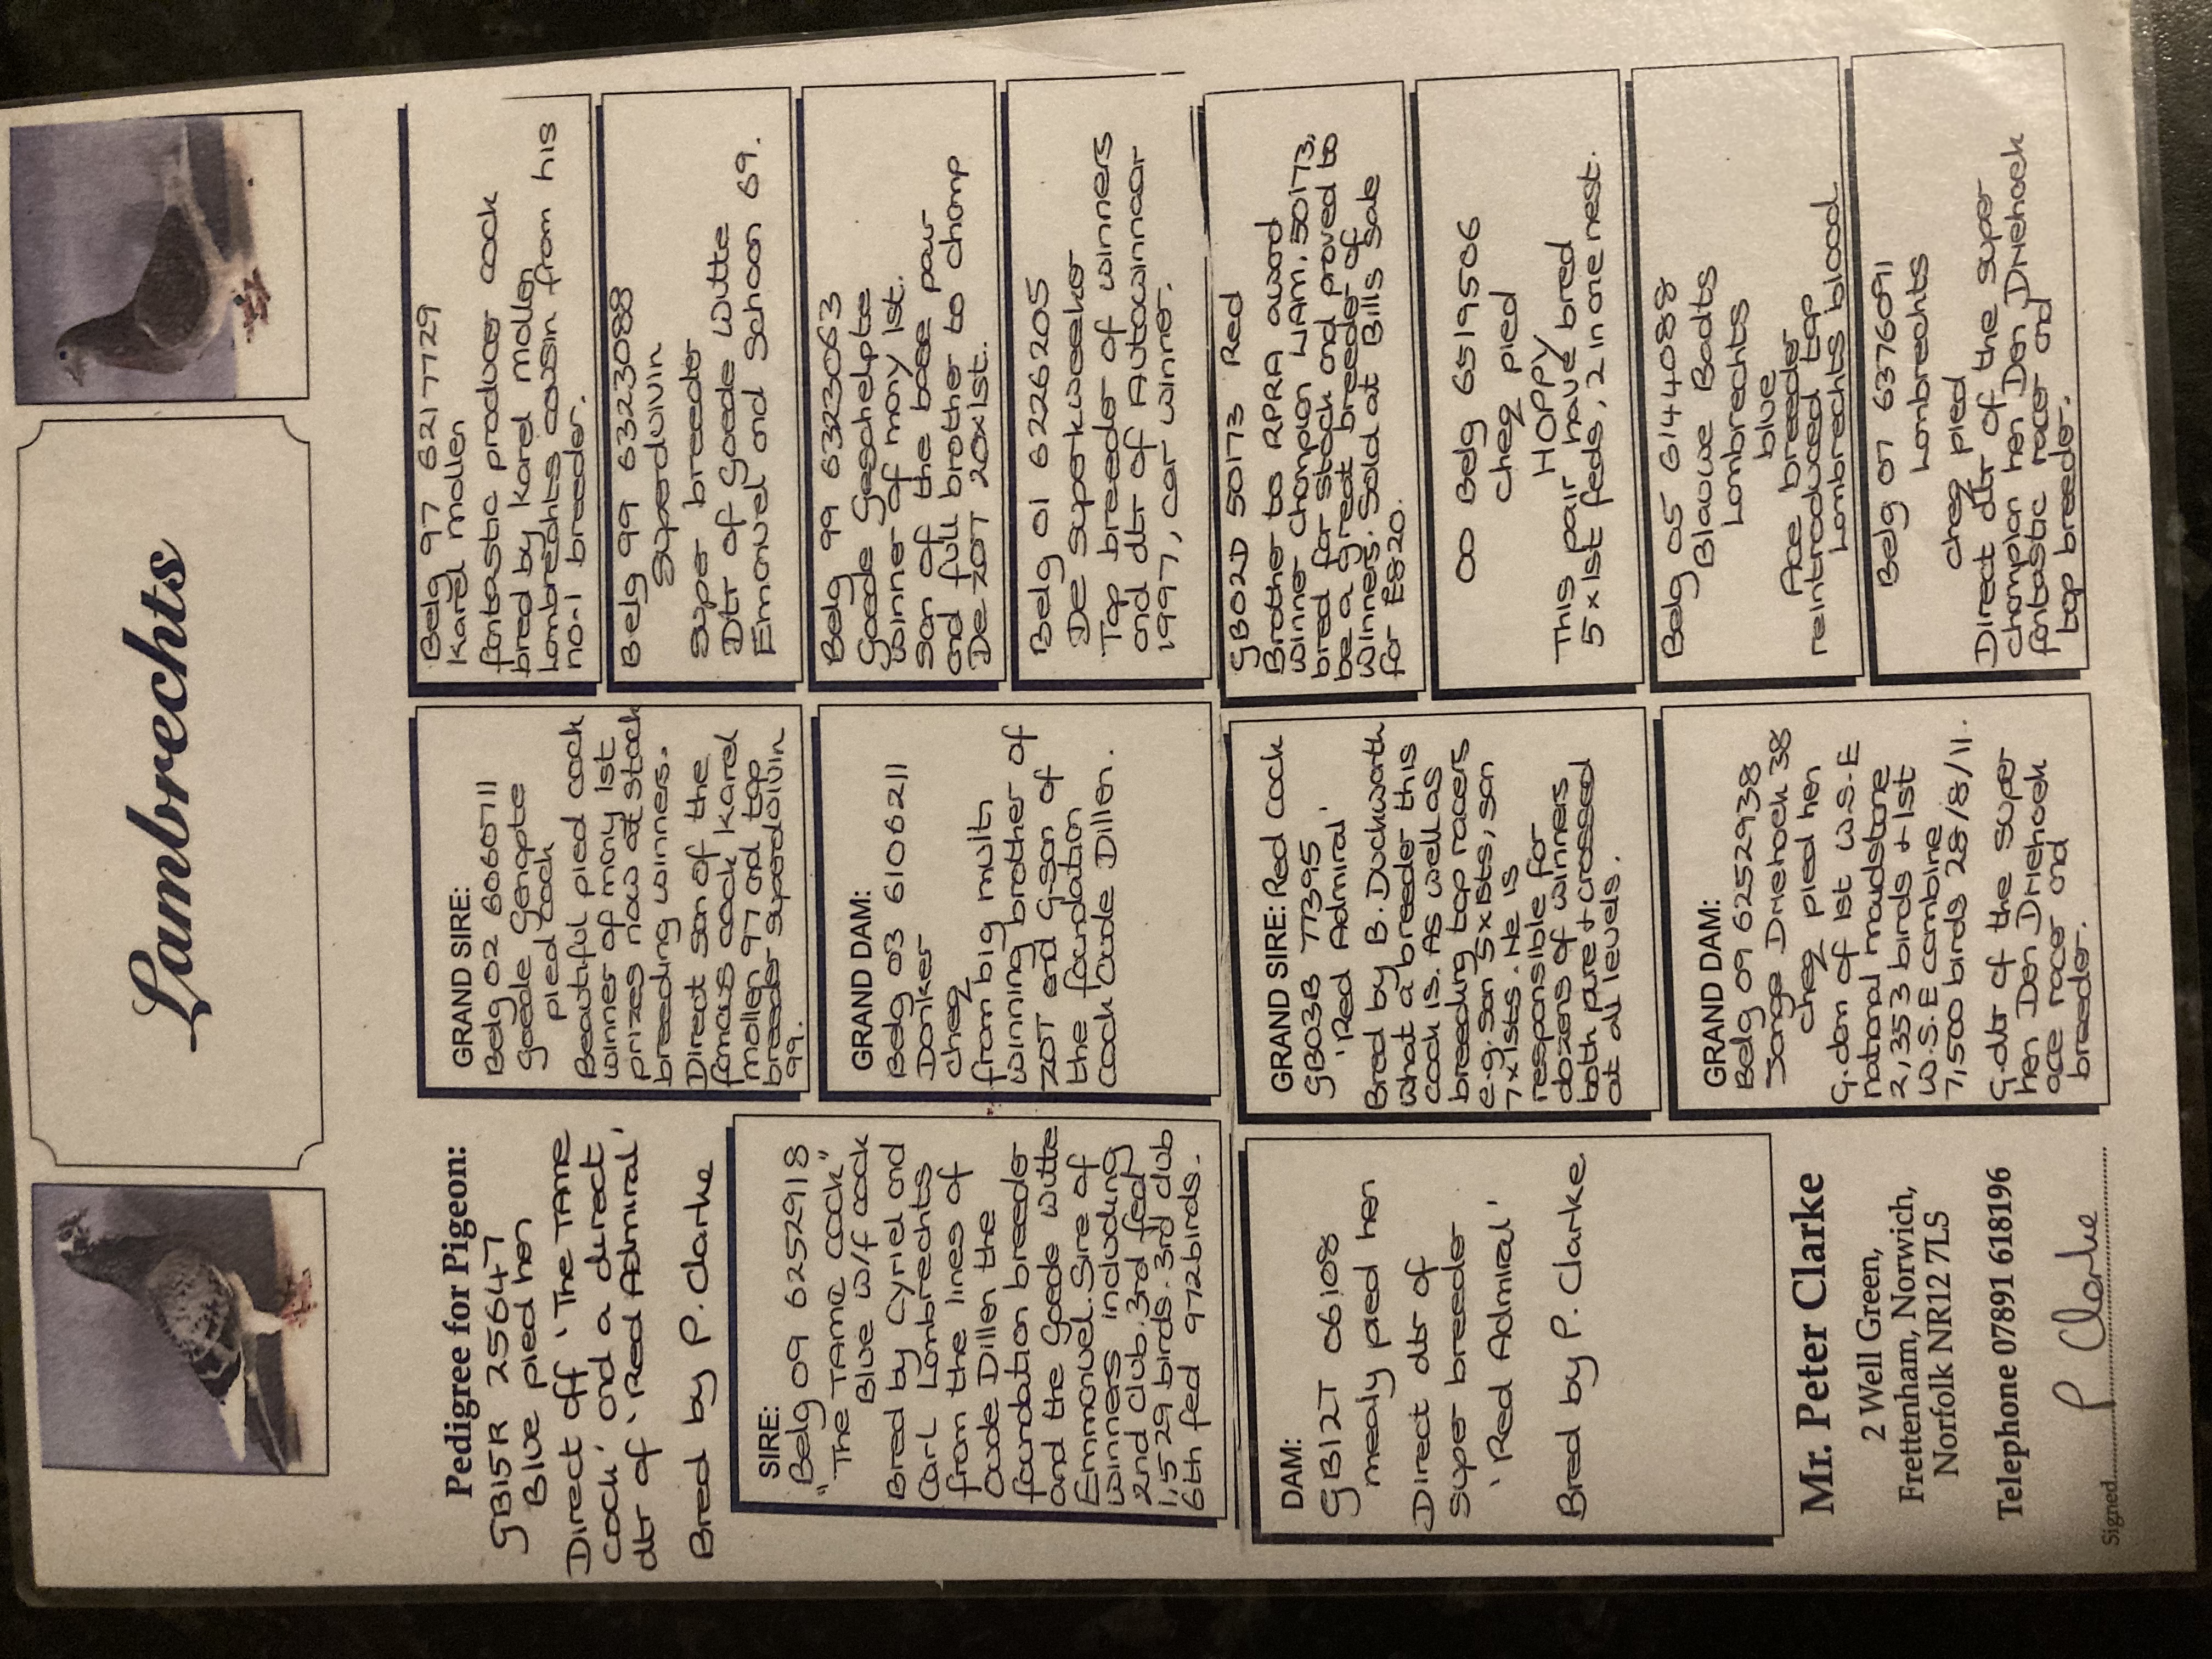 Lambrechts
Pedigree for Pigeon:
GB15R 25647
Blue pied hen
Direct off 'The TAME
Cock' and a direct
dtr of 'Red Admiral'
Bred by P. Clarke
SIRE:
"Belg 09 6252918
"The TAME COCK"
Blue w/f cock
Bred by Cyriel and
Carl Lambrechts
from the lines of
Oude Dillen the
foundation breeder
and the Goede Witte
Emmanuel. Sire of
winners including
2nd club. 3rd fed
1,529 birds. 3rd club
6th fed 972 birds.
DAM:
GB12T 06108
mealy pied hen
Direct dtr of
super breeder
'Red Admiral'
Bred by P. Clarke
Mr. Peter Clarke
2 Well Green,
Frettenham, Norwich,
Norfolk NR12 7LS
Telephone 07891 618196
Signed P Clarke
GRAND SIRE:
Belg 02 6060711
Goede Genapte
pied cock
Beautiful pied cock
winner of many 1st
prizes now at stock
breeding winners.
Direct son of the
famous cock Karel
mollen 97 and top
breeder superduivin
99.
GRAND DAM:
Belg 03 6106211
Donker
cheq
from big multi
winning brother of
ZOT and G-son of
the foundation
cock Oude Dillen.
GRAND SIRE: Red cock
GB03B 77395
'Red Admiral'
Bred by B. Duckworth
what a breeder this
cock is. As well as
breeding top racers
e.g. son 5x1sts, son
7x1sts. He is
responsible for
dozens of winners
both pure + crossed
at all levels.
GRAND DAM:
Belg 09 6252938
Jonge Driehoek 38
cheq pied hen
G.dam of 1st W.S.E
national maudstone
2,353 birds + 1st
W.S.E combine
7,500 birds 28/8/11.
G.dtr of the super
hen Den Driehoek
ace racer and
breeder.
Belg 97 6217729
Karel mollen
fantastic producer cock
bred by Karel mollen
Lambrechts cousin from his
no-1 breeder.
Belg 99 6323088
Superduivin
super breeder
Dtr of Goede Witte
Emanuel and Schoon 69.
Belg 99 6323063
Goede Geschelpte
winner of many 1st.
Son of the base pair
and full brother to champ
De ZOT 20x1st.
Belg 01 6226205
De superkweeker
Top breeder of winners
and dtr of Autowinnaar
1997, car winner.
GB02D 50173 Red
Brother to RPRA award
winner champion LIAM. 50173,
bred for stock and proved to
be a great breeder of
winners. Sold at Bills sale
for £820.
00 Belg 6519506
cheq pied
HOPPY
This pair have bred
5x1st feds, 2 in one nest.
Belg 05 6144088
Blauwe Bodts
Lambrechts
blue
Ace breeder
reintroduced top
Lambrechts blood
Belg 07 6376091
Lambrechts
cheq pied
Direct dtr of the super
champion hen Den Driehoek
fantastic racer and
top breeder.